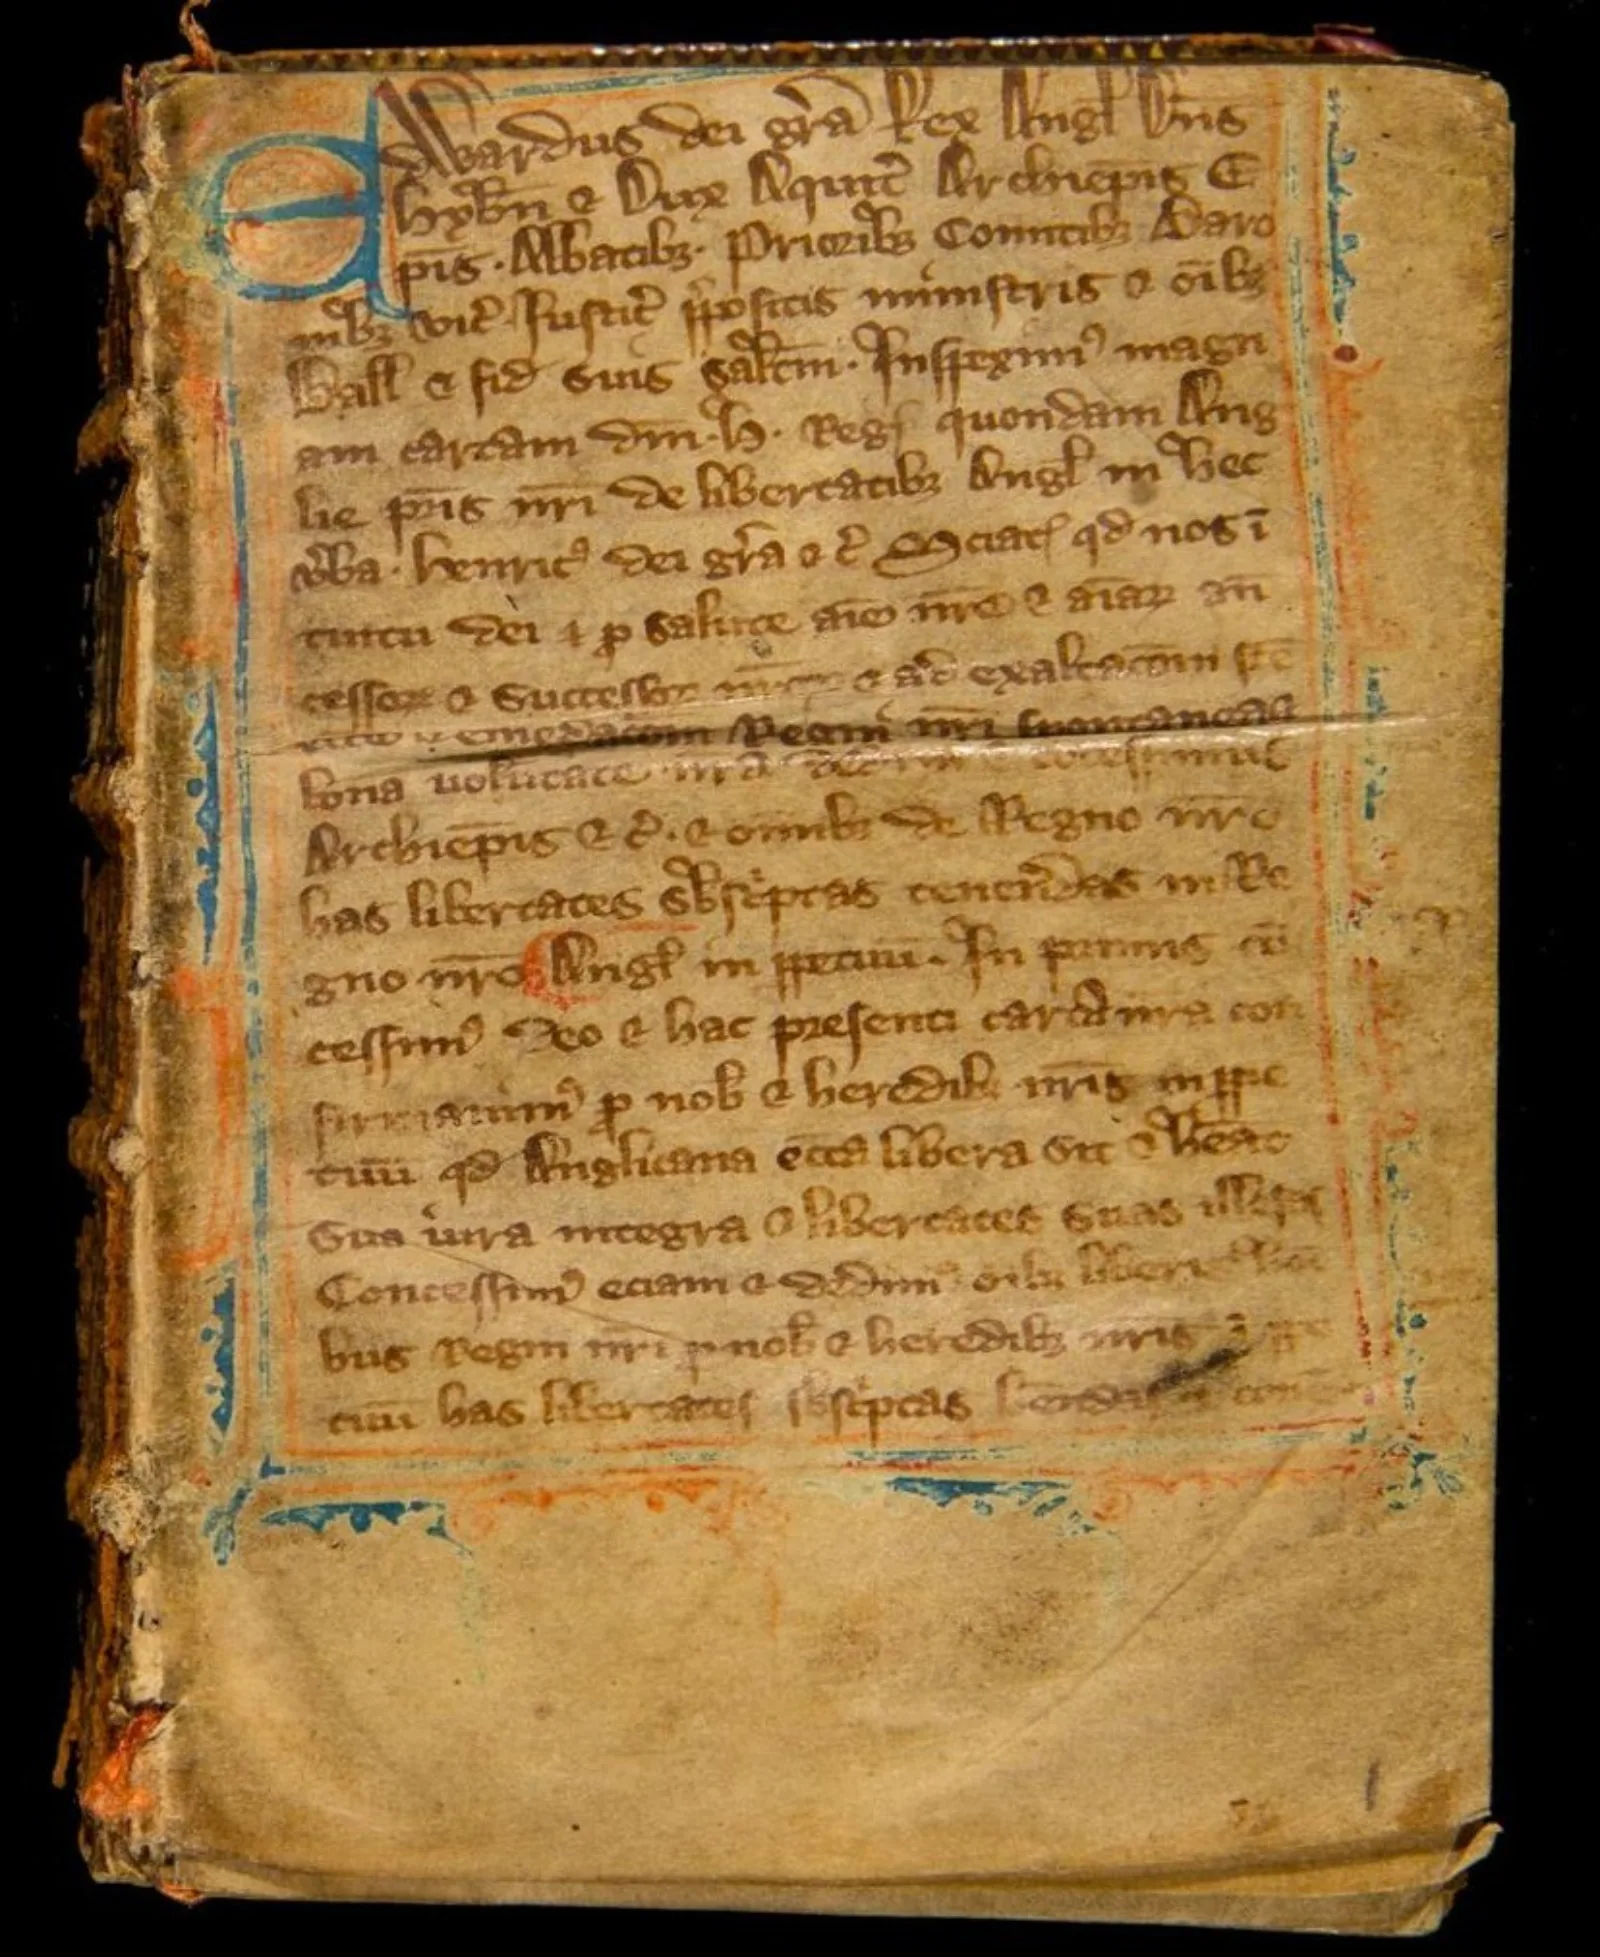 Edwardus dei gr̃a Rex Angl Dñs
hyb̃n & Dux Aquit̃ Archiep̃is E
p̃is · Abbatibꝫ · Prioribꝫ Comitibꝫ Baro
nibꝫ vic̃ Justic̃ p̃positis ministris & oĩbꝫ
Ball & fid suis sal̃tm · Inspeximꝰ magn
am cartam dñi · h · Regꝭ quondam Ang
lie p̃ris nr̃i de libertatibꝫ Angl̃ in hec
v̾ba · henricꝰ dei gr̃a & c̃ Sciatꝭ qd nos ĩ
tuitu dei & ꝑ salute aĩe nr̃e & aĩaꝝ añ
cessoꝝ & Successoꝝ nr̃oꝝ & ad exaltacõm
emẽdacõm Regni nr̃i spontanea &
bona volũtate nr̃a
Archiep̃is & c̃ · & omĩbꝫ de Regno nr̃o
has libertates sb̃sc̃ptas tenend̃as in Re
gno nr̃o Angl̃ in ꝑpetuũ · In primis cõ
cessimꝰ Deo & hac presenti carta nr̃a con
firmauimꝰ ꝑ nob̃ & heredibꝫ nr̃is in ꝑpe
tuũ qd Anglicana ecc̃a libera sit & h̃eat
Sua iura integra & libertates suas illesas
Concessimꝰ eciam & dedimꝰ oĩbꝫ liberis
bus Regni nr̃i ꝑ nob̃ & heredibꝫ nr̃is
tuũ has libertates sb̃sc̃ptas